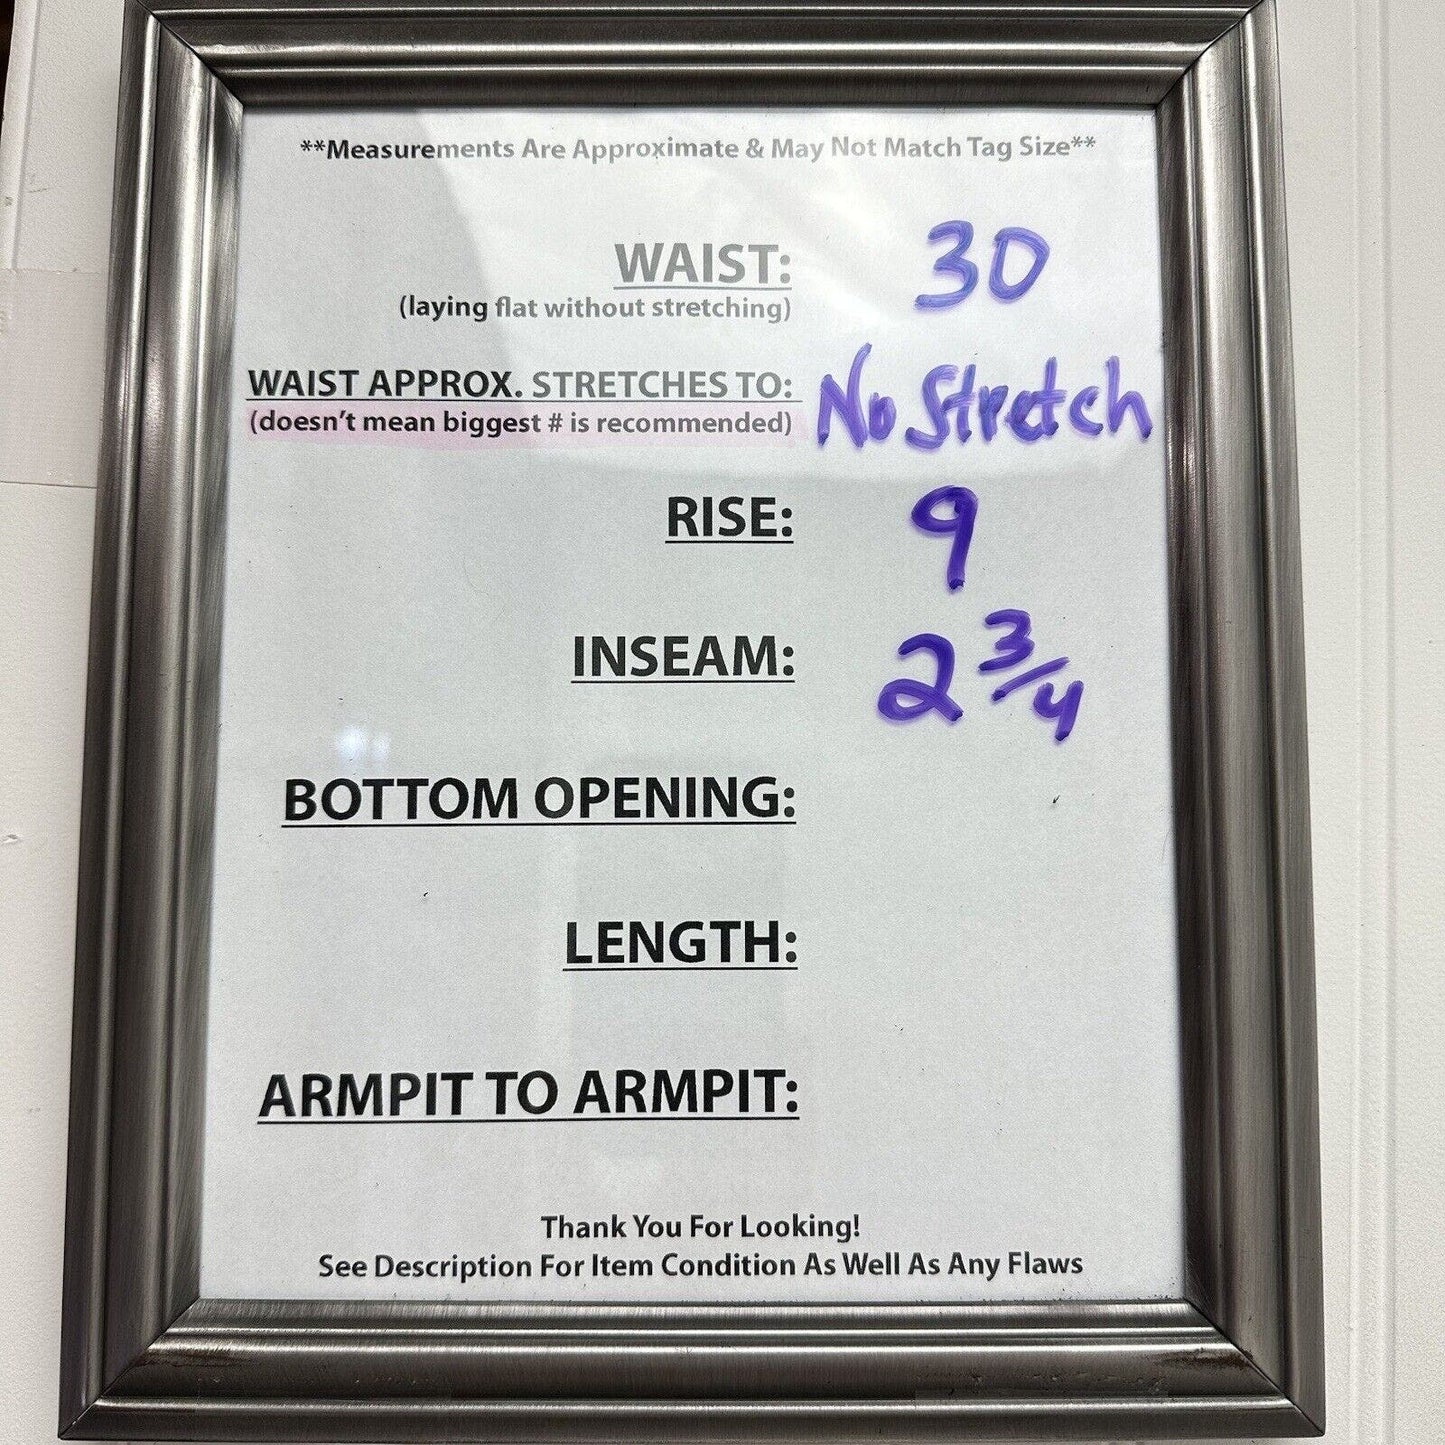 **Measurements Are Approximate & May Not Match Tag Size**
WAIST: 30
(laying flat without stretching)
WAIST APPROX. STRETCHES TO: No Stretch
(doesn't mean biggest # is recommended)
RISE: 9
INSEAM: 2 3/4
BOTTOM OPENING:
LENGTH:
ARMPIT TO ARMPIT:
Thank You For Looking!
See Description For Item Condition As Well As Any Flaws